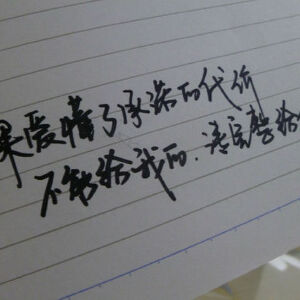 果爱懂了承诺的代价
不能给我的.请完整给